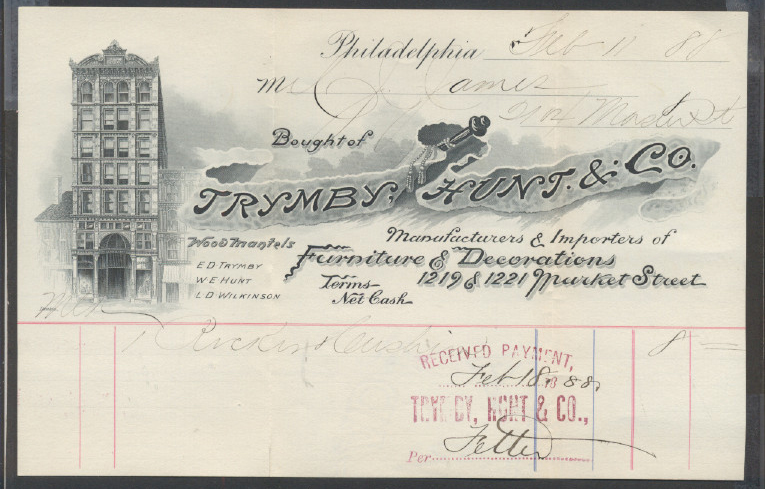 Philadelphia Feb 11 88
M James
Master St
Bought of
TRYMBY, HUNT & CO.
Manufacturers & Importers of
Furniture & Decorations
1219 & 1221 Market Street
Wood Mantels
E D TRYMBY
W E HUNT
L D WILKINSON
Terms
Net Cash
1 Rocker & Cushion 8 =
RECEIVED PAYMENT,
Feb 18 1888
TRYMBY, HUNT & CO.,
Per Fetter